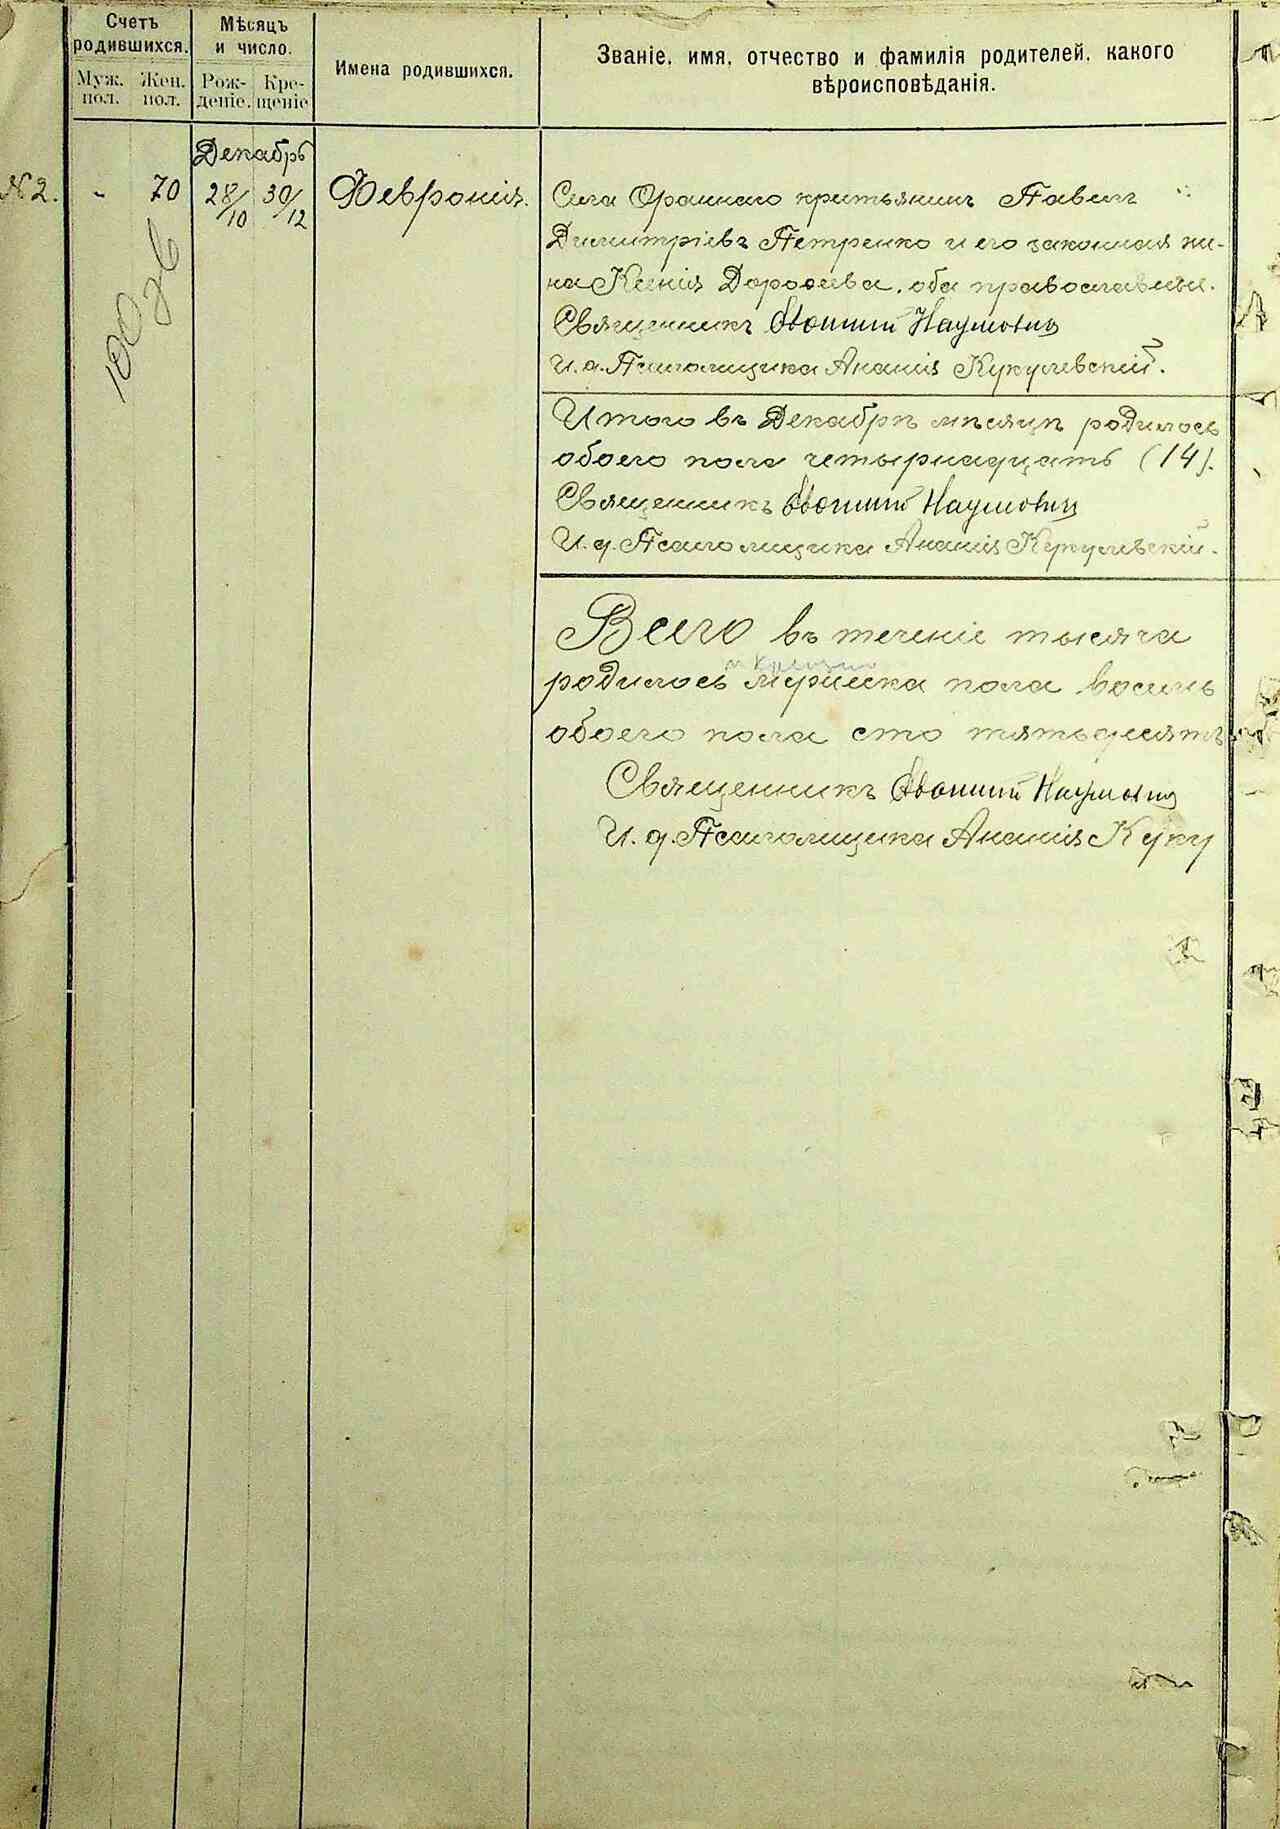 Счетъ родившихся.
Муж. пол.
Жен. пол.
Мѣсяцъ и число.
Рож-деніе.
Кре-щеніе
Имена родившихся.
Званіе, имя, отчество и фамилія родителей, какого
вѣроисповѣданія.
Декабрь
№ 2. " 70 28/10 30/12 Февронія.
Села Оранаго крестьянинъ Павелъ
Димитріевъ Петренко и его законная же-
на Ксенія Дорофеева, оба православные.
Священникъ Наумовичъ
И. д. Псаломщика Ананія Кукулевскій.
Итого въ Декабрѣ мѣсяцѣ родилось
обоего пола четырнадцать (14).
Священникъ Наумовичъ
И. д. Псаломщика Ананія Кукулевскій.
Всего въ теченіе тысяча
родилось мужеска пола восемь
обоего пола сто пятьдесятъ
Священникъ Наумовичъ
И. д. Псаломщика Ананія Куку